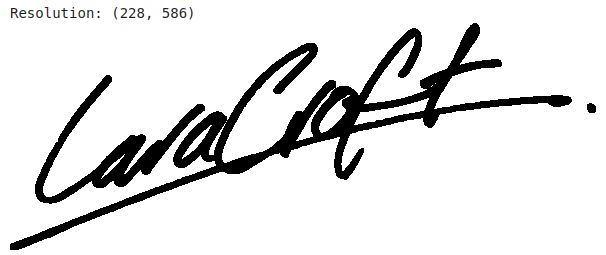 Resolution: (228, 586)
LaraCroft.